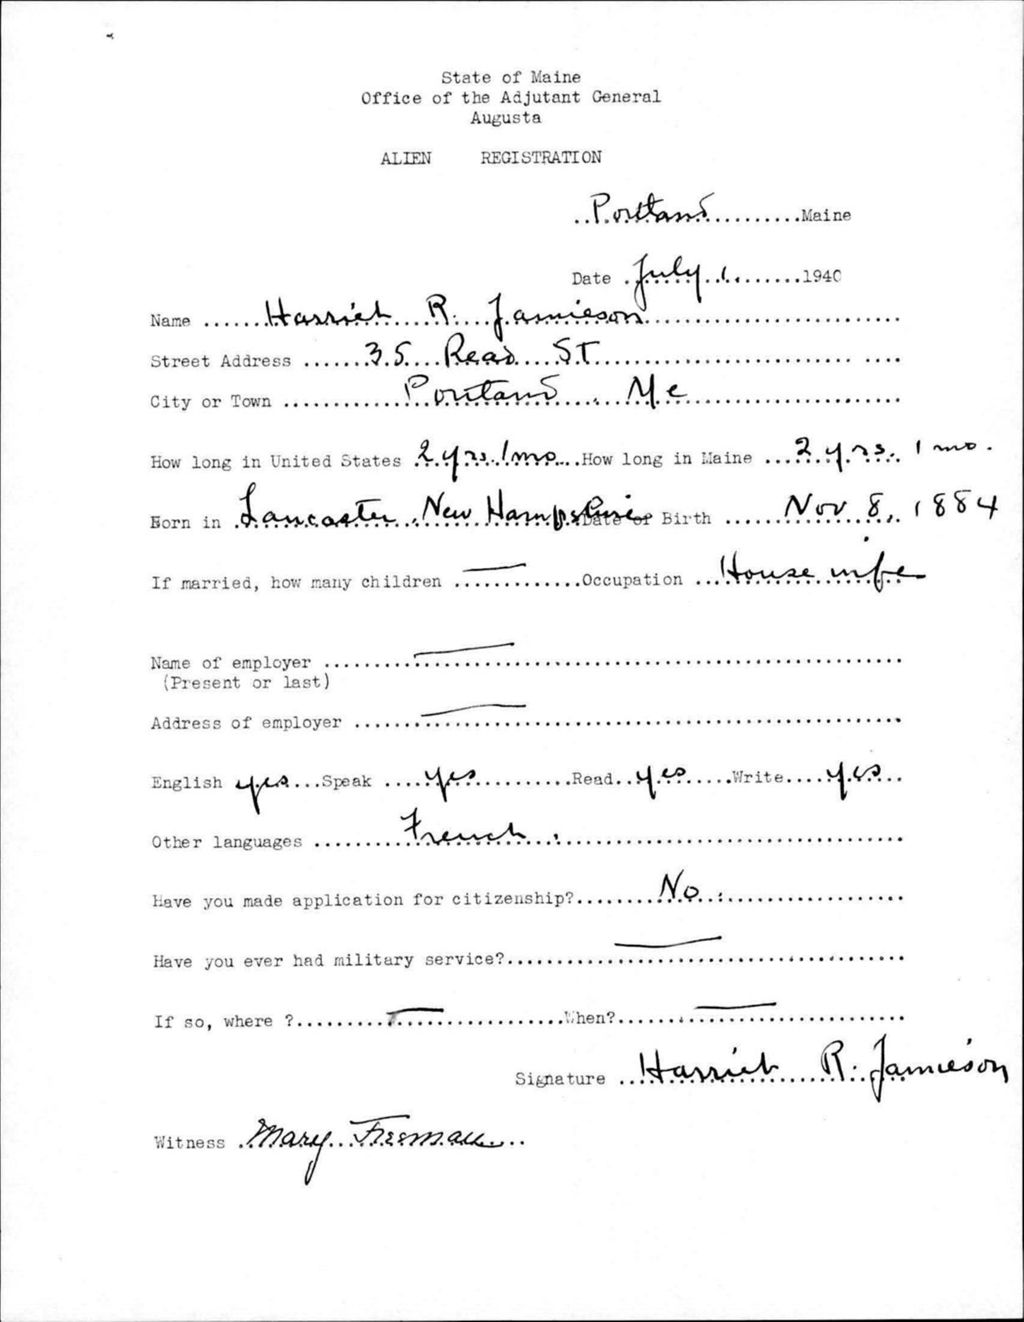 State of Maine
Office of the Adjutant General
Augusta
ALIEN REGISTRATION
..Portland..........Maine
Date .July..1........1940
Name .......Harriet R. Jamieson..........................
Street Address .......35 Read St............................
City or Town .............Portland, Me......................
How long in United States 2 yrs. 1 mo....How long in Maine ...2 yrs. 1 mo.
Born in .Lancaster, New Hampshire Date of Birth ......Nov 8, 1884
If married, how many children .............Occupation ...Housewife
Name of employer ..........................................................
(Present or last)
Address of employer .......................................................
English yes...Speak ....yes..........Read..yes......Write....yes...
Other languages ..........French.....................................
Have you made application for citizenship?.........No......................
Have you ever had military service?........................................
If so, where ?...........................When?.............................
Signature ..Harriet R. Jamieson
Witness .Mary Freeman...